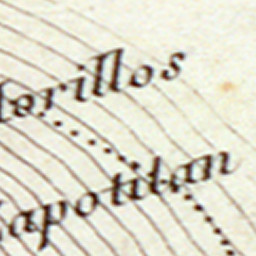 lorillos
Zapotitan